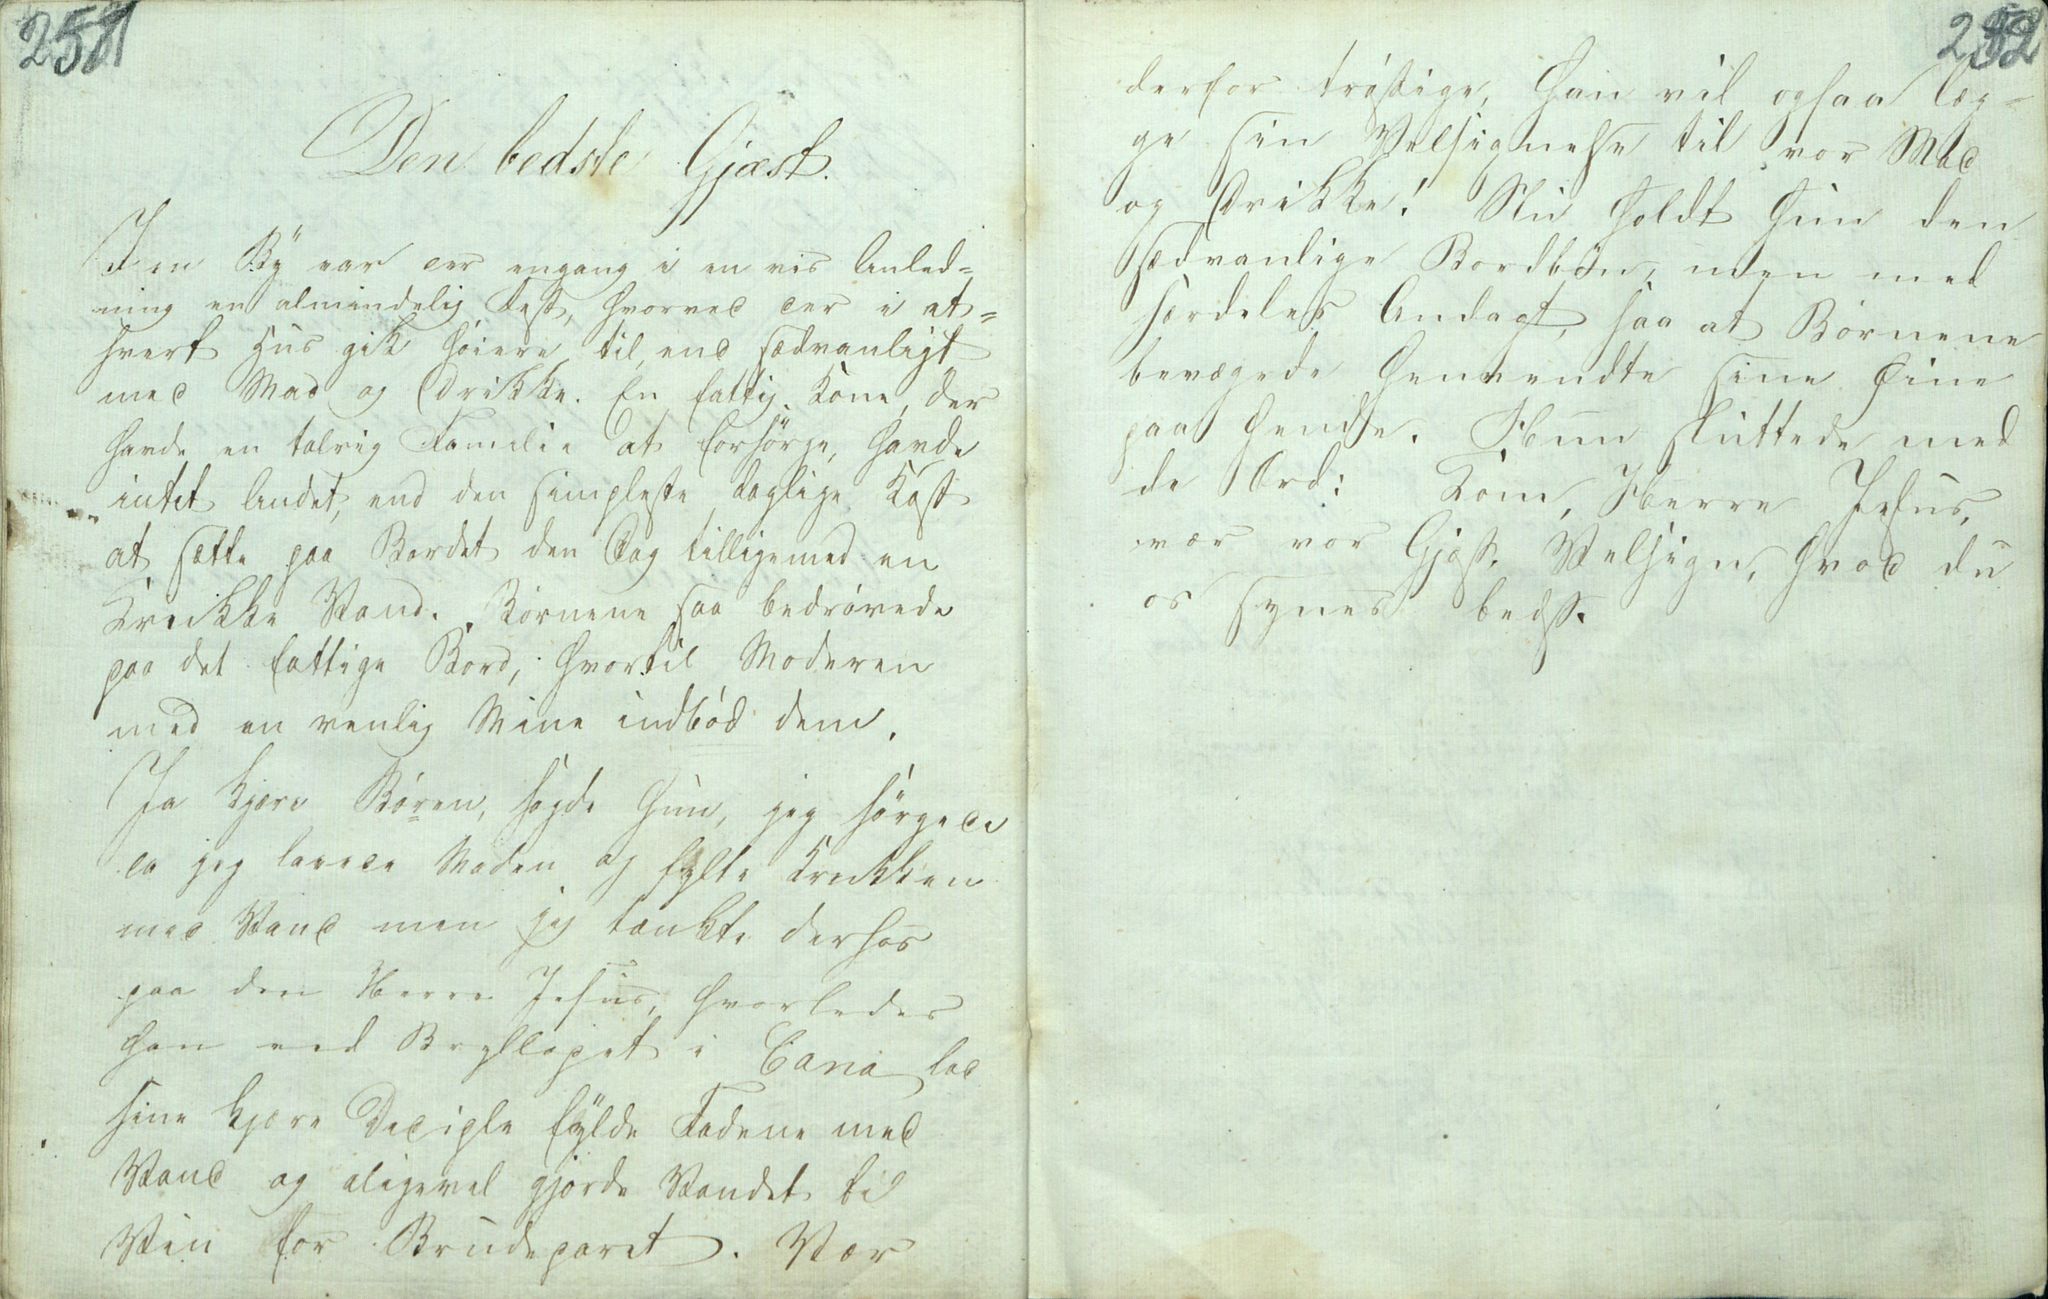 251
Den bedste Gjæst.
I en By var der engang i en vis Anled-
ning en almindelig Fest, hvorved der i et-
hvert Hus gik høiere til, end sædvanligt
med Mad og Drikke. En fattig Kone, der
havde en talrig Familie at forsørge, havde
intet Andet, end den simpleste daglige Kost
at sætte paa Bordet den Dag tilligemed en
Krukke Vand. Børnene saa bedrøvede
paa det fattige Bord, hvortil Moderen
med en venlig Mine indbød dem.
Ja kjære Børen, sagde hun, jeg sørgede
da jeg lavede Maden og fylte Krukken
med Vand men jeg tænkte derhos
paa den Herre Jesus, hvorledes
han ved Bryllopet i Cana lod
sine kjære Deciple fylde Fadene med
Vand og aligevel gjorde Vandet til
Vin for Brudeparet. Vær
252
derfor trøstige, han vil ogsaa læg-
ge sin Velsignelse til vor Mad
og Drikke! Nu holdt hun den
sædvanlige Bordbøn, men med
særdeles Andagt, saa at Børnene
bevægede henvendte sine Øine
paa hende. Hun sluttede med
de Ord: Kom, Herre Jesus,
vær vor Gjæst. Velsign, hvad du
os synes bedst.